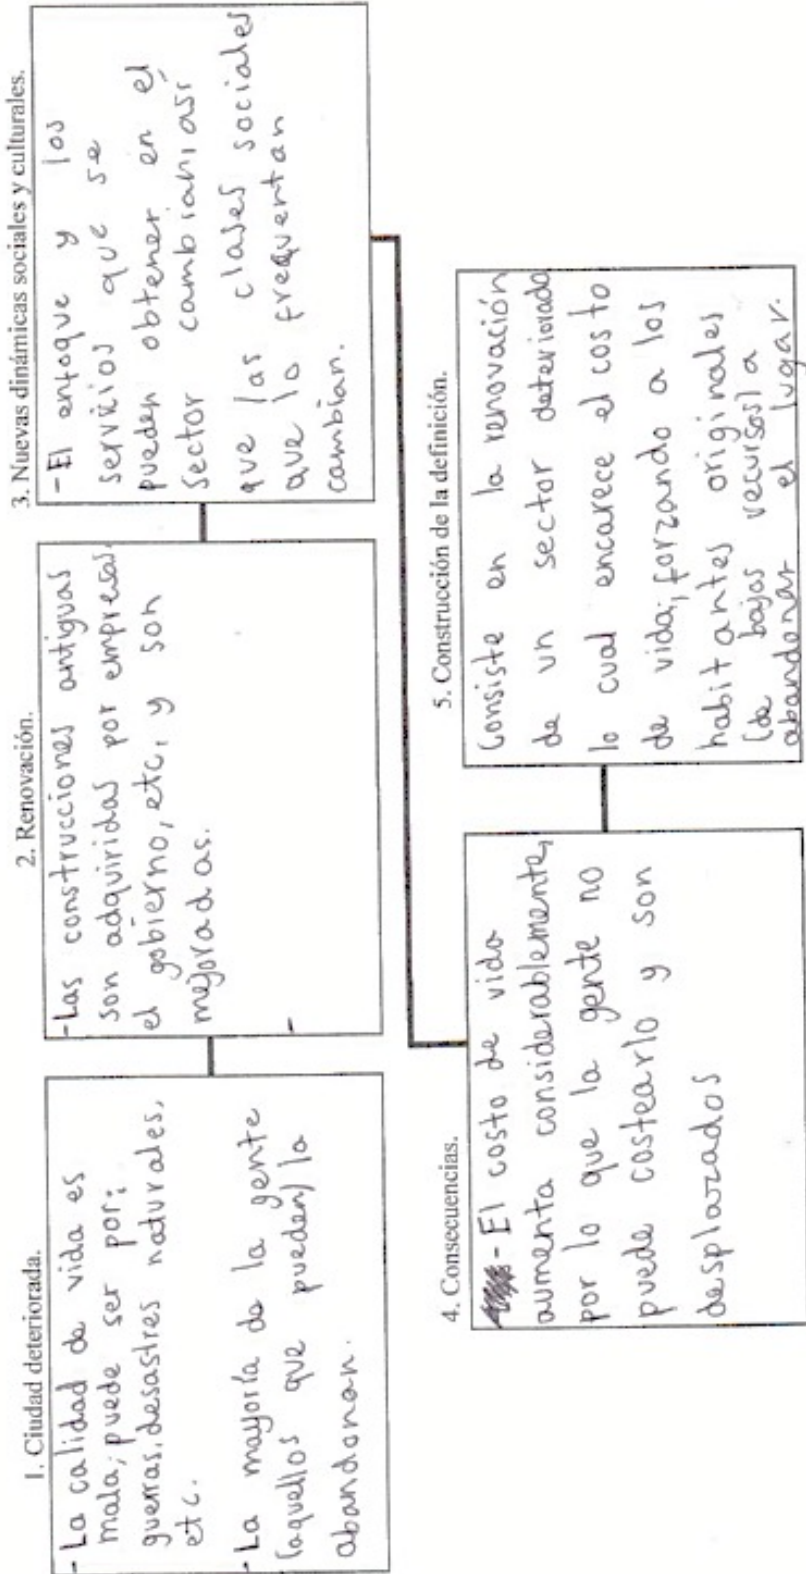 1. Ciudad deteriorada.
-La calidad de vida es
mala; puede ser por:
guerras, desastres naturales,
etc.
-La mayoría de la gente
(aquellos que pueden) la
abandonan.
2. Renovación.
-Las construcciones antiguas
son adquiridas por empresas,
el gobierno, etc, y son
mejoradas.
-
3. Nuevas dinámicas sociales y culturales.
-El enfoque y los
servicios que se
pueden obtener en el
sector cambian, así
que las clases sociales
que lo frequentan
cambian.
4. Consecuencias.
-El costo de vida
aumenta considerablemente,
por lo que la gente no
puede costearlo y son
desplazados
5. Construcción de la definición.
Consiste en la renovación
de un sector deteriorado
lo cual encarece el costo
de vida; forzando a los
habitantes originales
(de bajos recursos) a
abandonar el lugar.